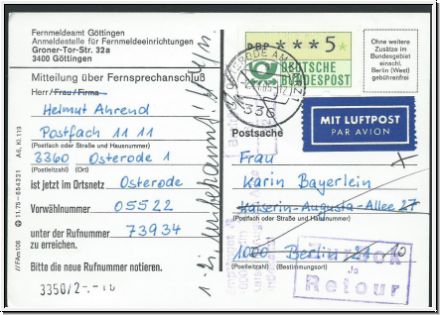 Fernmeldeamt Göttingen
Anmeldestelle für Fernmeldeeinrichtungen
Groner-Tor-Str. 32a
3400 Göttingen
Mitteilung über Fernsprechanschluß
Herr/Frau/Firma
Helmut Ahrend
Postfach 11 11
(Postfach oder Straße und Hausnummer)
3360 Osterode 1
(Postleitzahl) (Ort)
ist jetzt im Ortsnetz Osterode
Vorwählnummer 05522
unter der Rufnummer 73934
zu erreichen.
Bitte die neue Rufnummer notieren.
DBP ***5*
DEUTSCHE
BUNDESPOST
336
Ohne weitere
Zusätze im
Bundesgebiet
einschl.
Berlin (West)
gebührenfrei
MIT LUFTPOST
PAR AVION
Postsache
Frau
Karin Bayerlein
Kaiserin-Augusta-Allee 27
(Postfach oder Straße und Hausnummer)
1000 Berlin 21 10
(Postleitzahl) (Bestimmungsort)
Retour